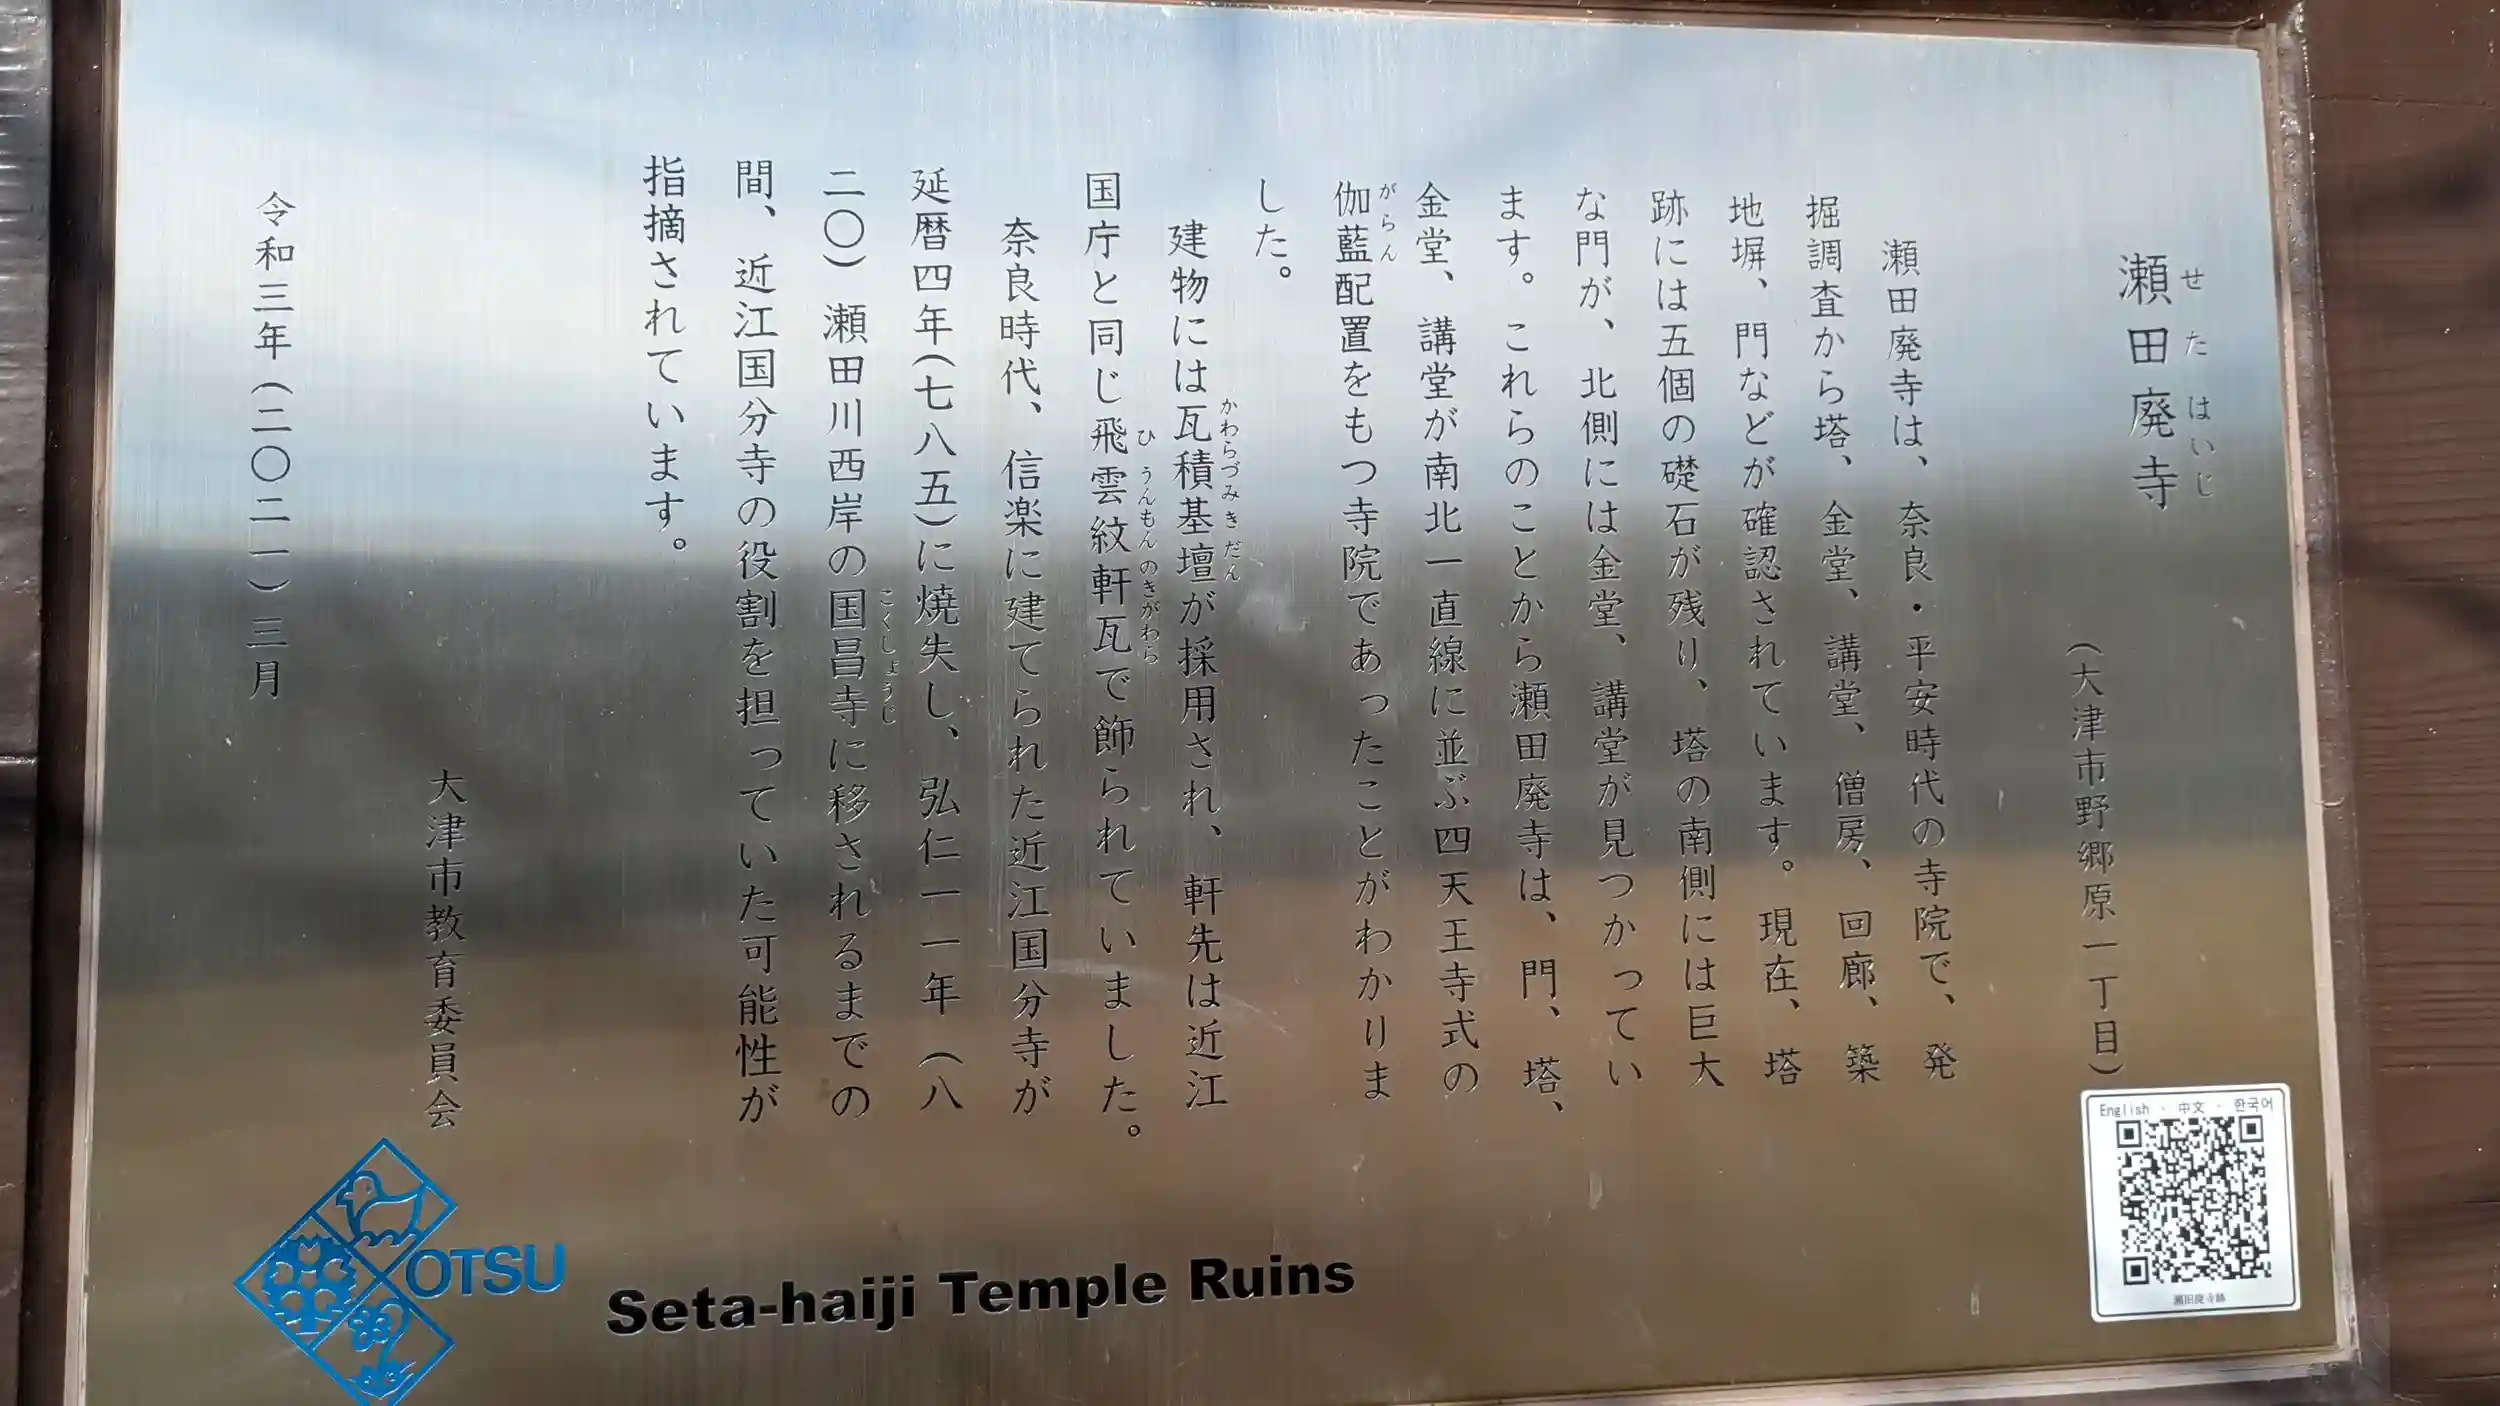 瀬田廃寺
せたはいじ
(大津市野郷原一丁目)
瀬田廃寺は、奈良・平安時代の寺院で、発
掘調査から塔、金堂、講堂、僧房、回廊、築
地塀、門などが確認されています。現在、塔
跡には五個の礎石が残り、塔の南側には巨大
な門が、北側には金堂、講堂が見つかってい
ます。これらのことから瀬田廃寺は、門、塔、
金堂、講堂が南北一直線に並ぶ四天王寺式の
がらん
伽藍配置をもつ寺院であったことがわかりま
した。
かわらづみきだん
建物には瓦積基壇が採用され、軒先は近江
ひうんもんのきがわら
国庁と同じ飛雲紋軒瓦で飾られていました。
奈良時代、信楽に建てられた近江国分寺が
延暦四年(七八五)に焼失し、弘仁一一年(八
こくしょうじ
二〇)瀬田川西岸の国昌寺に移されるまでの
間、近江国分寺の役割を担っていた可能性が
指摘されています。
大津市教育委員会
令和三年(二〇二一)三月
OTSU
Seta-haiji Temple Ruins
English · 中文 · 한국어
瀬田廃寺跡